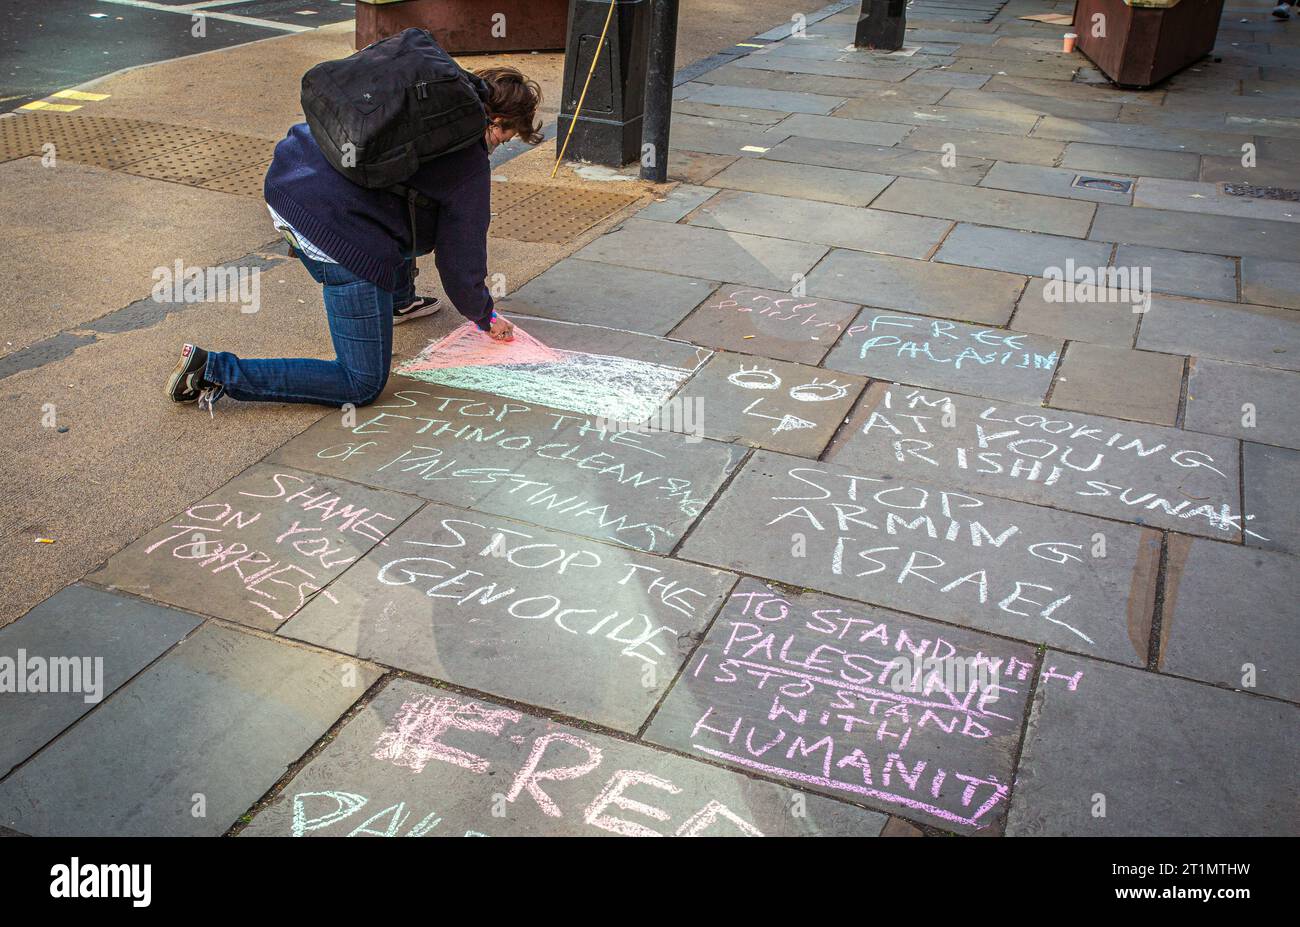 FREE
FREE
PALASTIN
I'M LOOKING
AT YOU
RISHI SUNAK
STOP THE
ETHNOCLEANSING
OF PALESTINIANS
STOP
ARMING
ISRAEL
SHAME
ON YOU
TORRIES
STOP THE
GENOCIDE
TO STAND WITH
PALESTINE
IS TO STAND
WITH
HUMANITY
FREE
alamy
Image ID: 2T1MTHW
www.alamy.com